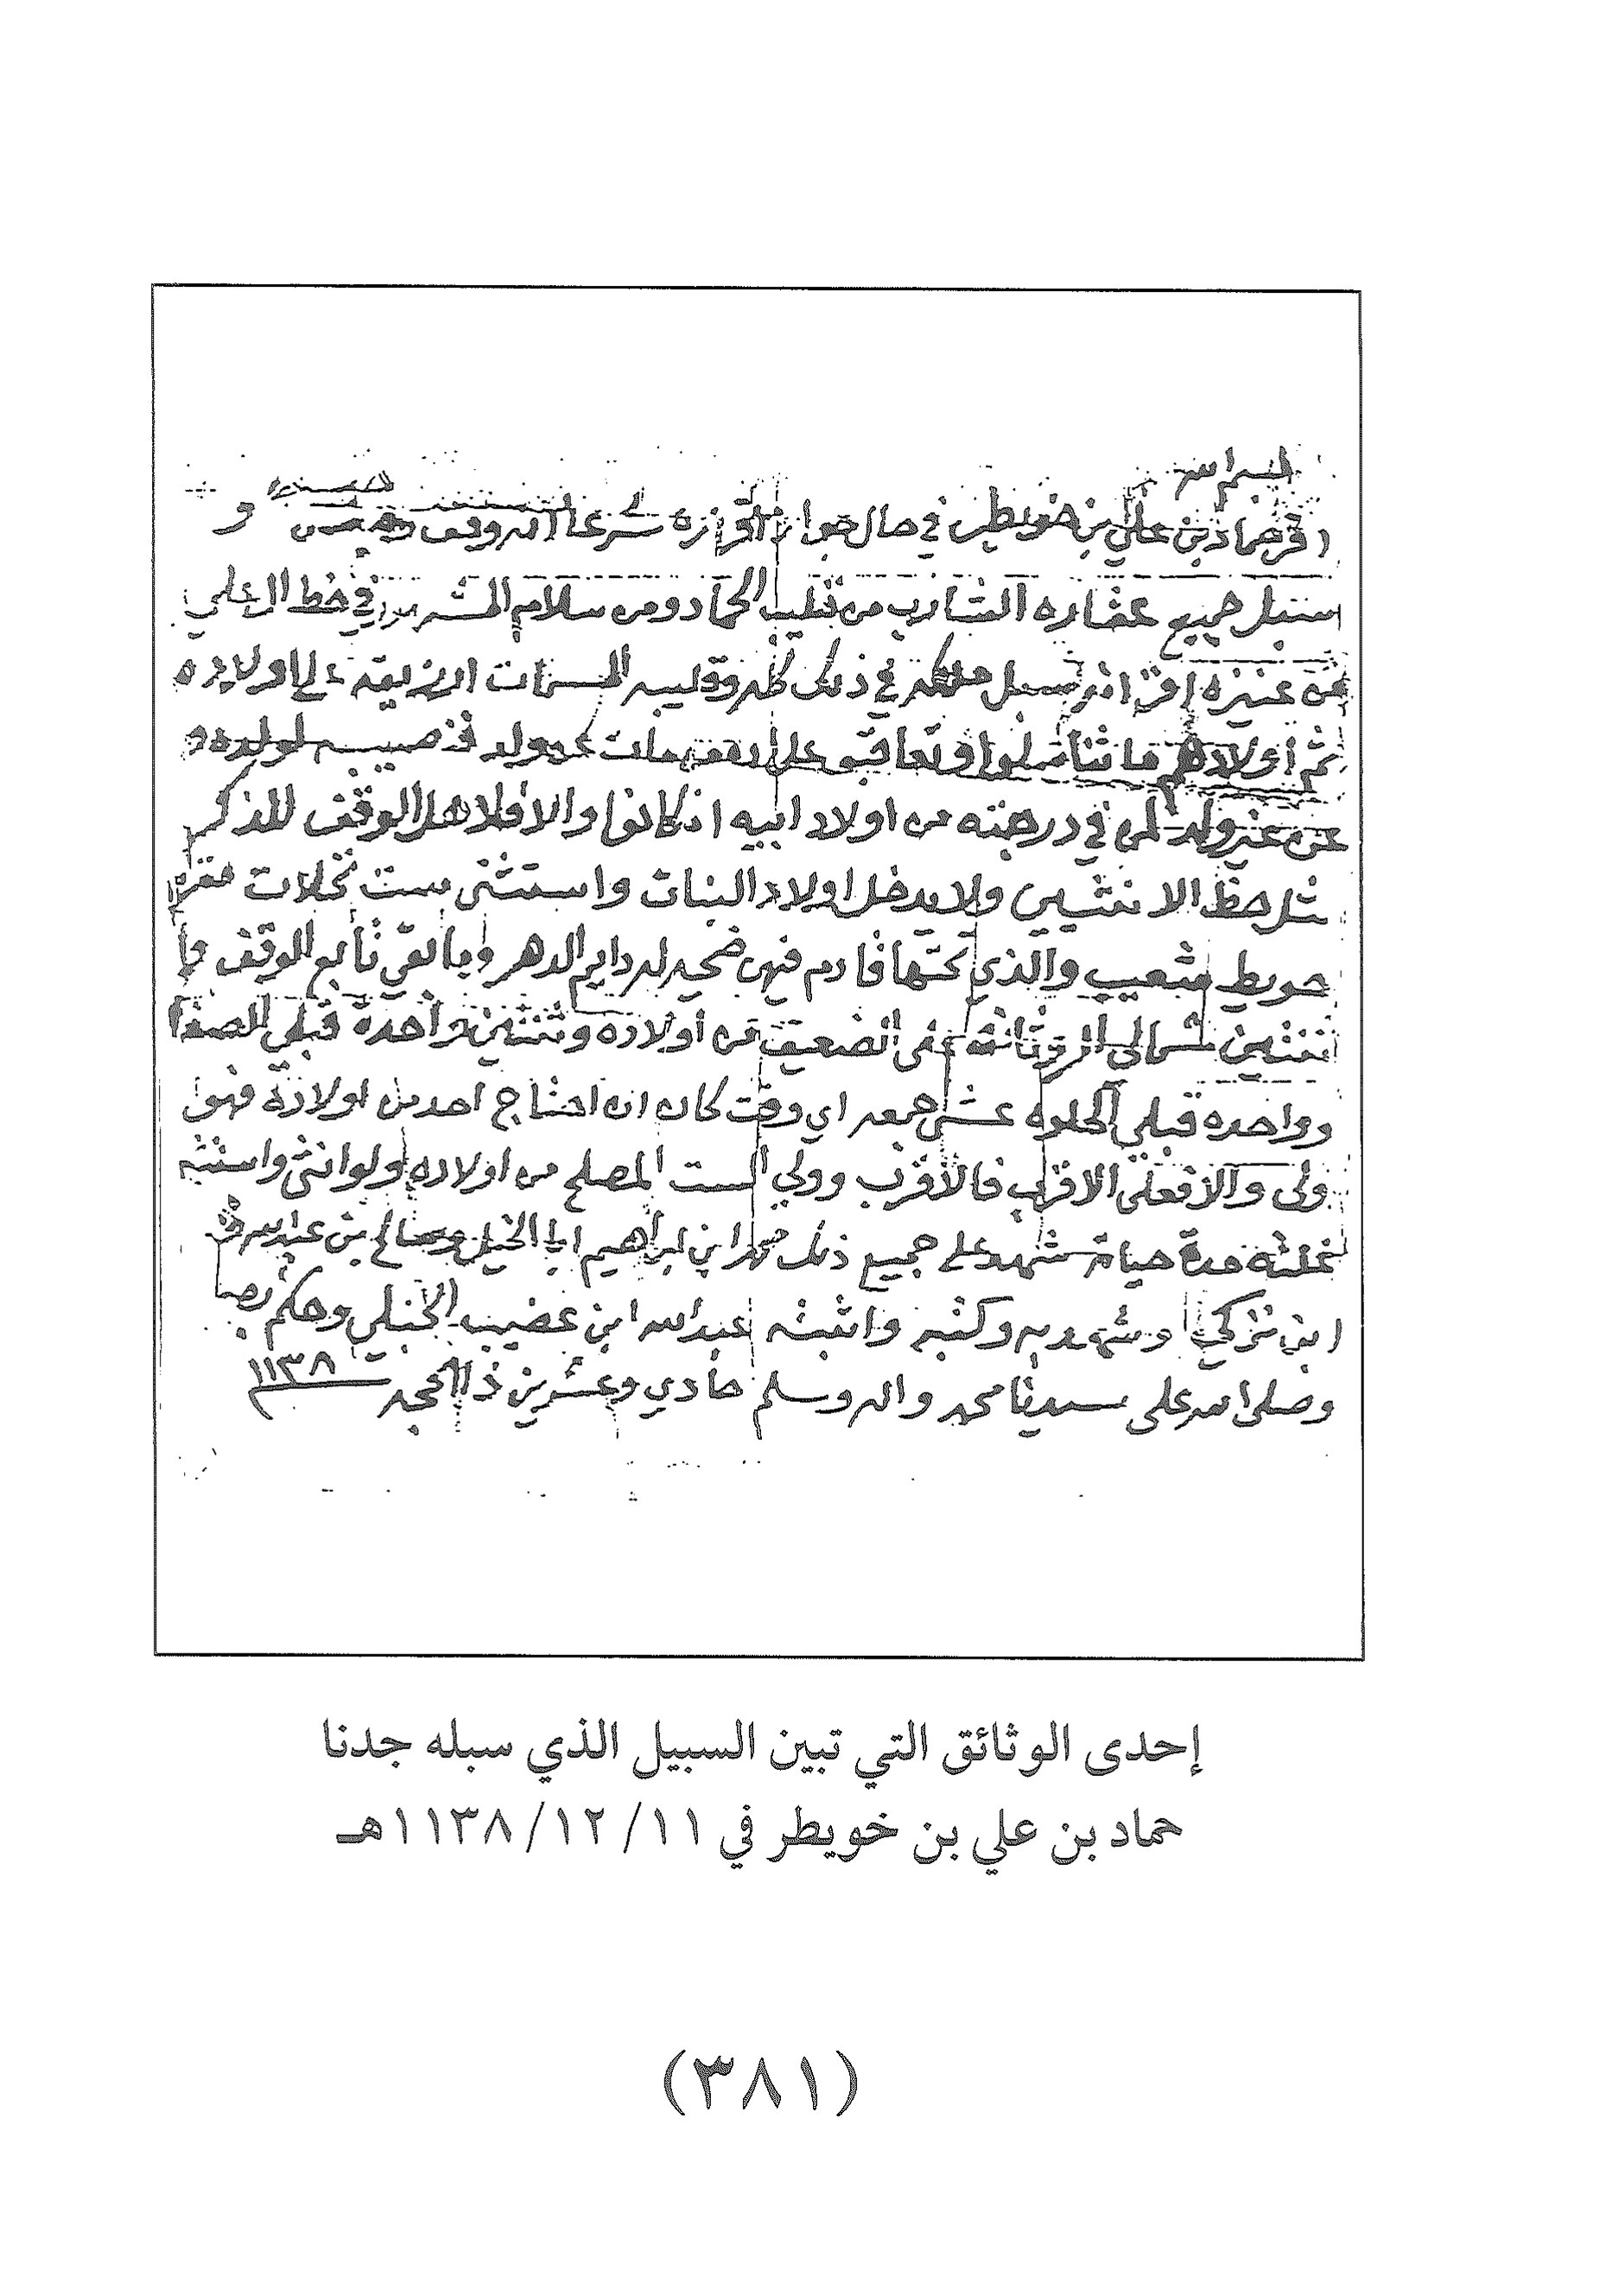 بسم الله
اقر حماد بن علي بن خويطر في حال جواز اقراره شرعا انه وقف و
سبل جميع عقاره الشارب من قليب الحماد ومن سلام في خط ال علي
من عنيزه اقر انه سبل ملكه في ذلك كله وقليبه على اولاده
ثم اولادهم ما تناسلوا وتعاقبو على ان من مات عن ولد فنصيبه لولده و
عن غير ولد لمن في درجته من اولاد ابيه ان كانوا والا فلاهل الوقف للذكر
مثل حظ الانثيين ولا يدخل اولاد البنات واستثنى ست نخلات
حويط شعيب والذي تحتها فادم فهن ضحيه له دايم الدهر وما بقي تابع الوقف
ثنتين شمالي على الضعيف من اولاده وثنتين واحدة قبلي الصفا
وواحده قبلي الحلوه عشى جمعه اي وقت كان ان احتاج احد من اولاده فهو
ولى والا فعلى الاقرب فالاقرب وولي الست المصلح من اولاده ولو انثى واستثنى
غلته مدة حياته شهد على جميع ذلك ابن ابراهيم ابا الخيل وصالح بن عبدالله
ابن تركي وشهد به وكتبه واثبته عبدالله ابن عضيب الحنبلي وحكم
وصلى الله على سيدنا محمد واله وسلم حادي وعشرين ذا الحجه ١١٣٨
إحدى الوثائق التي تبين السبيل الذي سبله جدنا
حماد بن علي بن خويطر في ١١/١٢/١١٣٨هـ
(٣٨١)